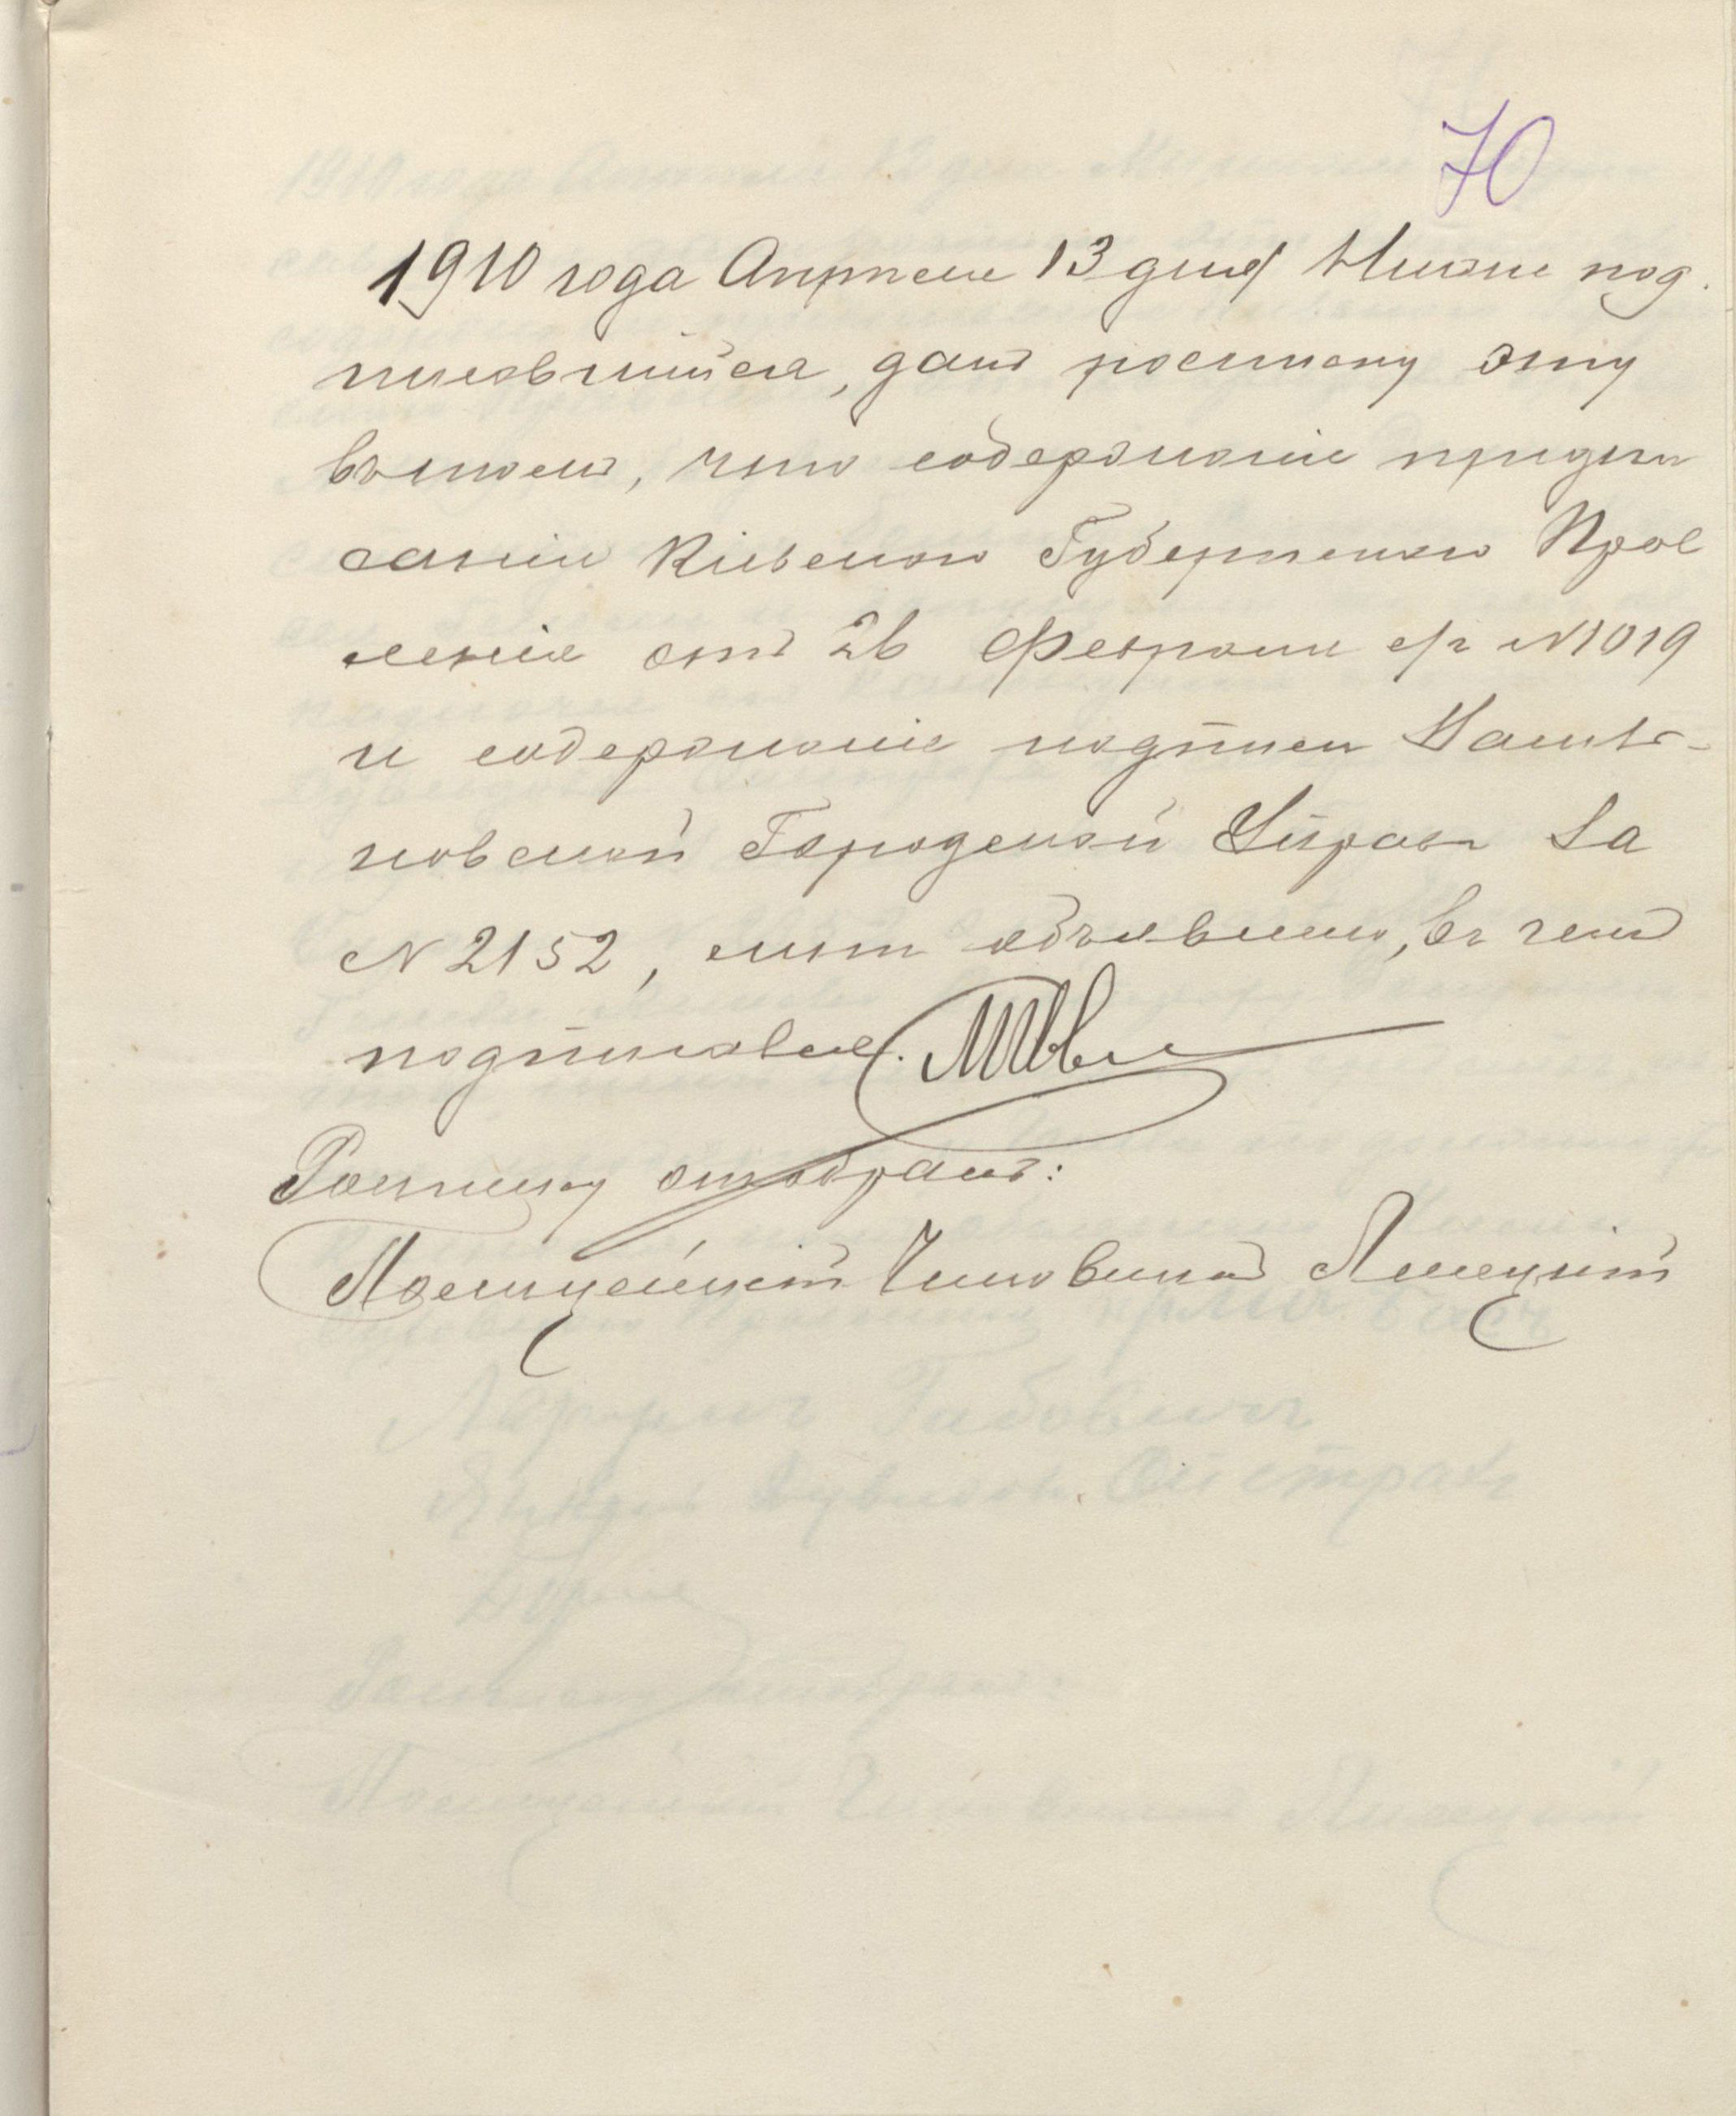 70
1910 года Апреля 13 дня Ниже под.
писавшийся, далъ росписку эту
въ томъ, что содержаніе предпи
санія Кіевскаго Губернскаго Прав
ленія отъ 26 Февраля с/г N 1019
и содержаніе надписи
новской Городской Управы за
N 2152, мнѣ объявлено, въ чемъ
подписался.
Росписку отобралъ:
Полицейскій Чиновникъ